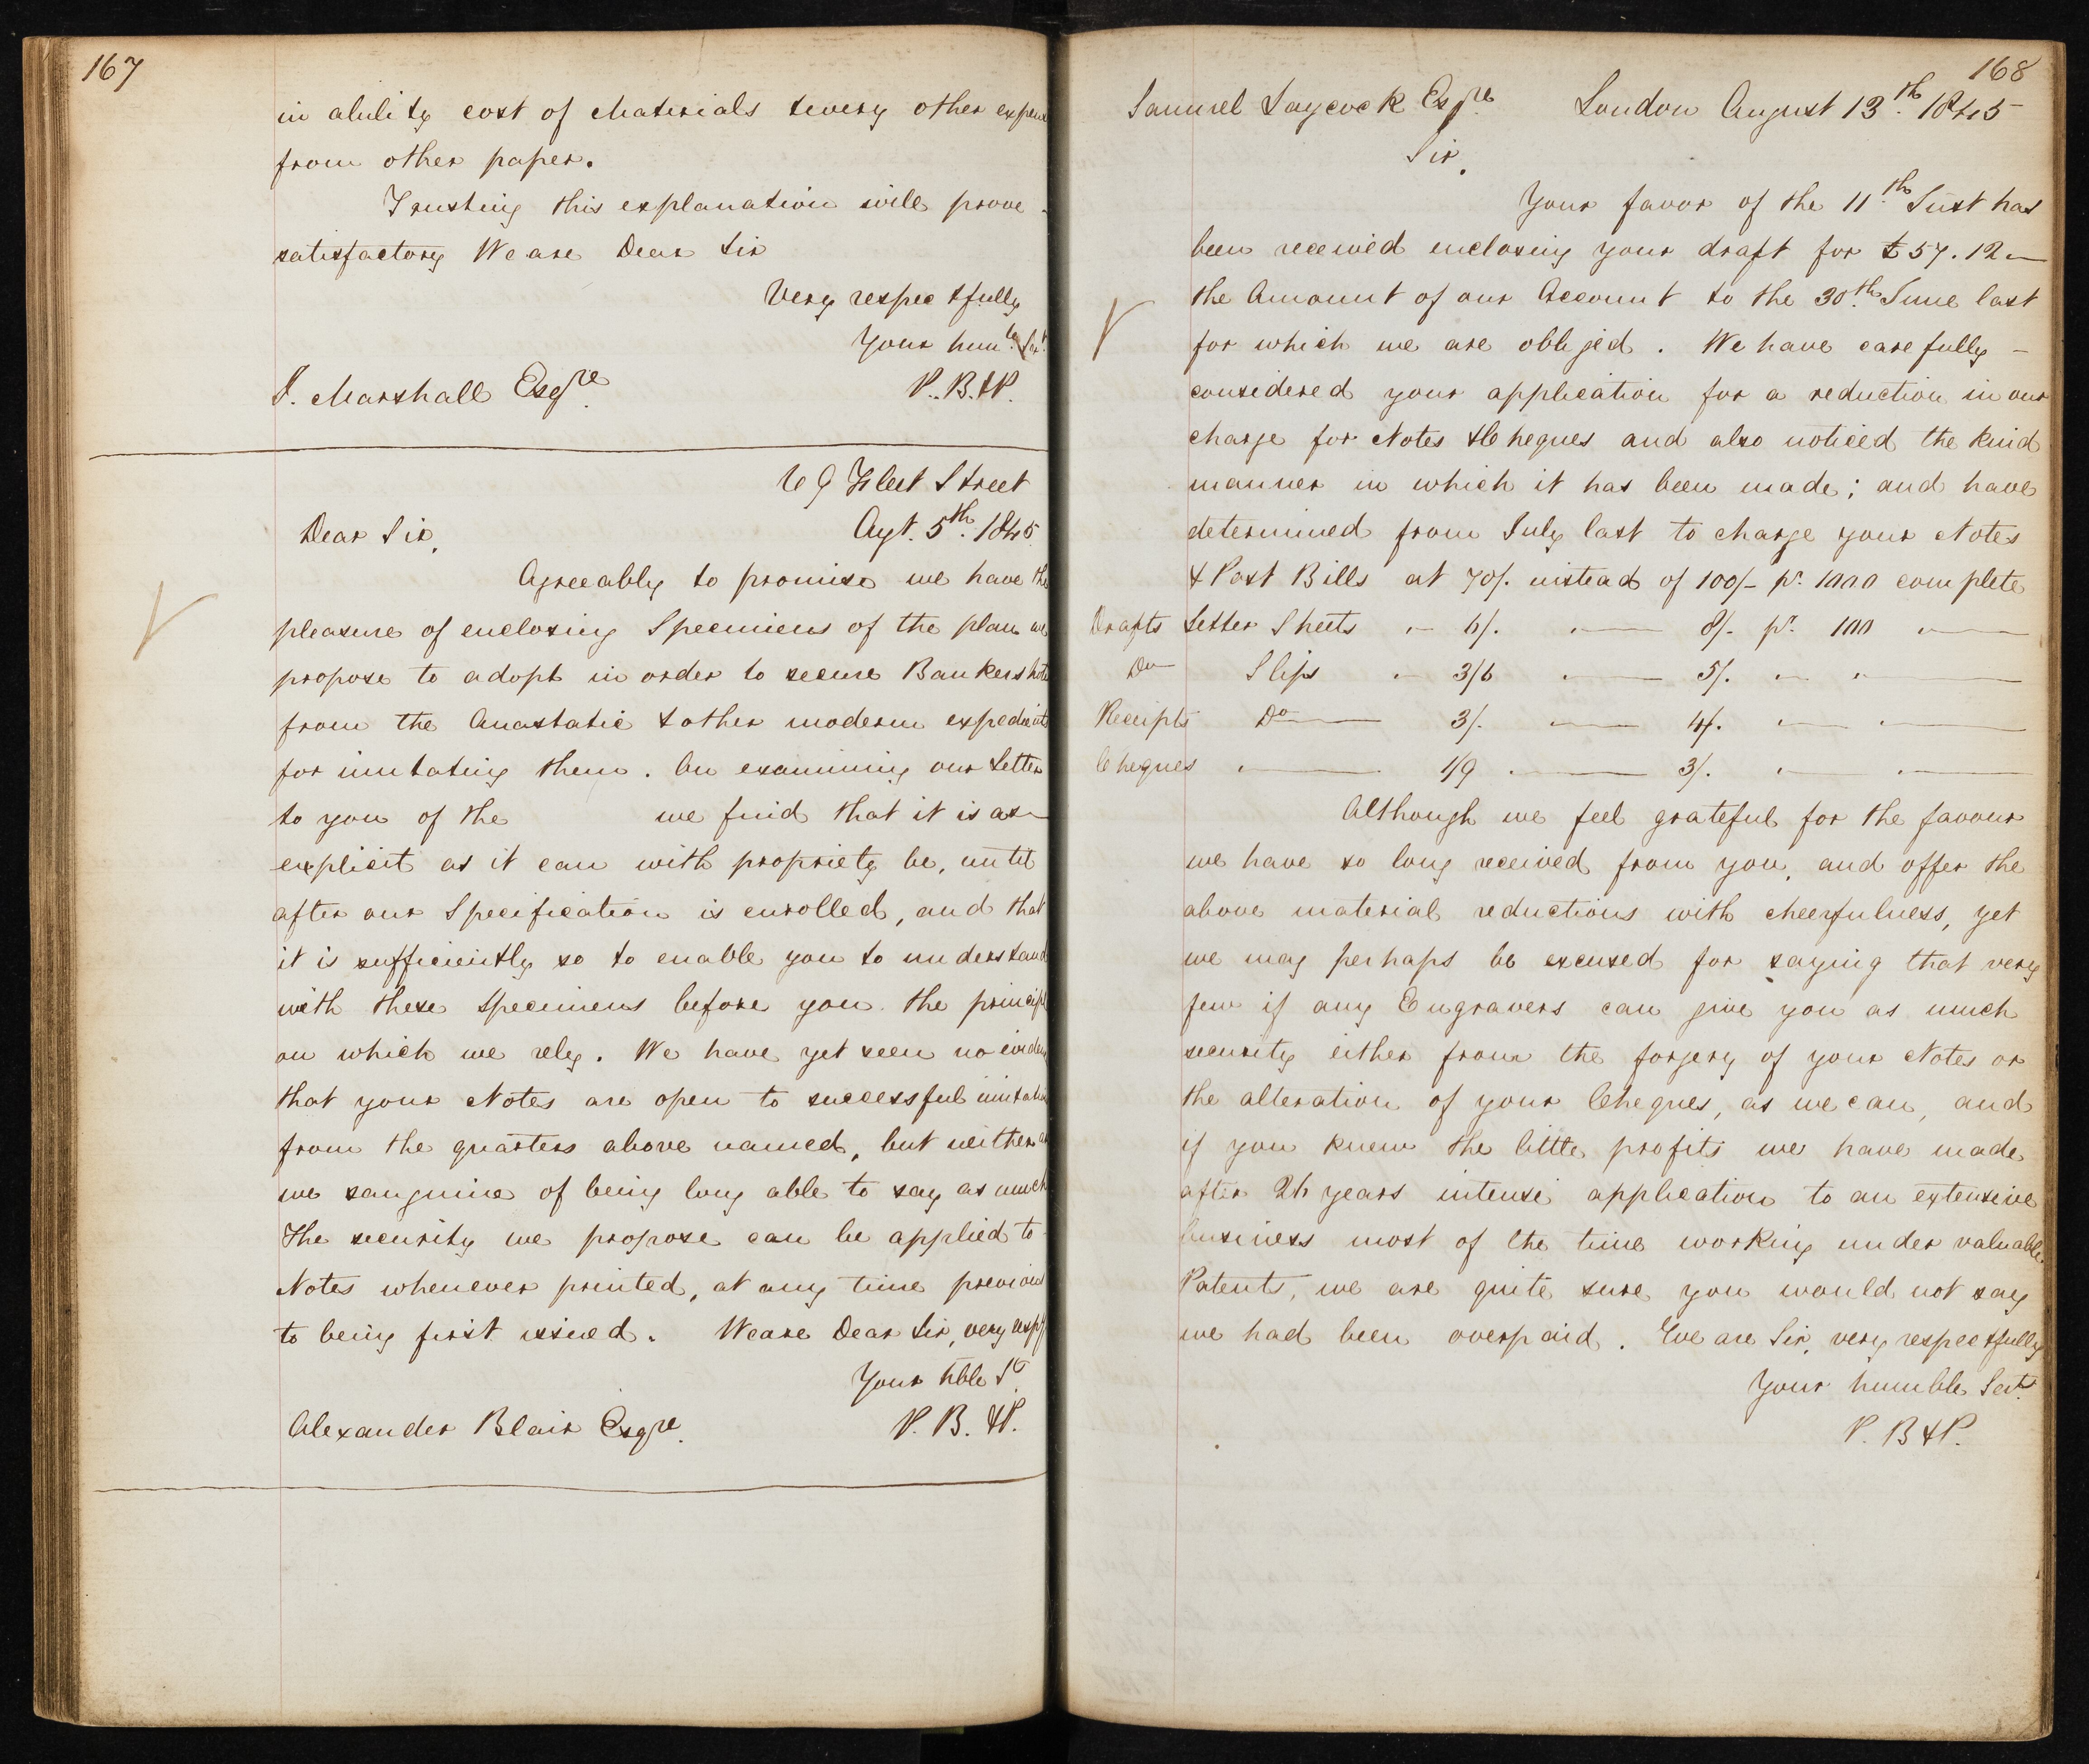 167
in ability cost of Materials & every other expense
from other paper.
Trusting this explanation will prove
satisfactory We are Dear Sir
Very respectfully
Your hum.le Ser.t
J. Marshall Esqre
P. B. & P.
69 Fleet Street
Augt. 5th. 1845
Dear Sir,
Agreeably to promise we have the
pleasure of enclosing Specimens of the plan we
propose to adopt in order to secure Bankers Notes
from the Anastatic & other modern expedients
for imitating them. On examining our Letter
to you of the we find that it is as
explicit as it can with propriety be, until
after our Specification is enrolled, and that
it is sufficiently so to enable you to understand
with these Specimens before you the principle
on which we rely. We have yet seen no evidence
that your Notes are open to successful imitation
from the quarters above named, but neither are
we sanguine of being long able to say as much
The security we propose can be applied to
Notes whenever printed, at any time previous
to being first issued. We are Dear Sir, very respy
Your hble St
Alexander Blair Esqre.
P. B. & P.
168
Samuel Laycock Esqre. London August 13th. 1845
Sir,
Your favor of the 11th. Inst has
been received enclosing your draft for £57.12 —
the Amount of our Account to the 30th. June last
for which we are obliged. We have carefully –
considered your application for a reduction in our
charge for Notes & Cheques and also noticed the kind
manner in which it has been made; and have
determined from July last to charge your Notes
& Post Bills at 70/. instead of 100/- pr. 1000 complete
Drafts Letter Sheets — 6/. — 8/- pr. 100 —
Do Slips — 3/6 — 5/. — —
Receipts Do — 3/. — 4/. — —
Cheques — 1/9 — 3/. — —
Although we feel grateful for the favour
we have so long received from you, and offer the
above material reductions with cheerfulness, yet
we may perhaps be excused for saying that very
few if any Engravers can give you as much
security either from the forgery of your Notes or
the alteration of your Cheques, as we can, and
if you knew the little profits we have made
after 26 years intense application to an extensive
business most of the time working under valuable
Patents, we are quite sure you would not say
we had been overpaid. We are Sir, very respectfully
Your humble Servts.
P. B & P.